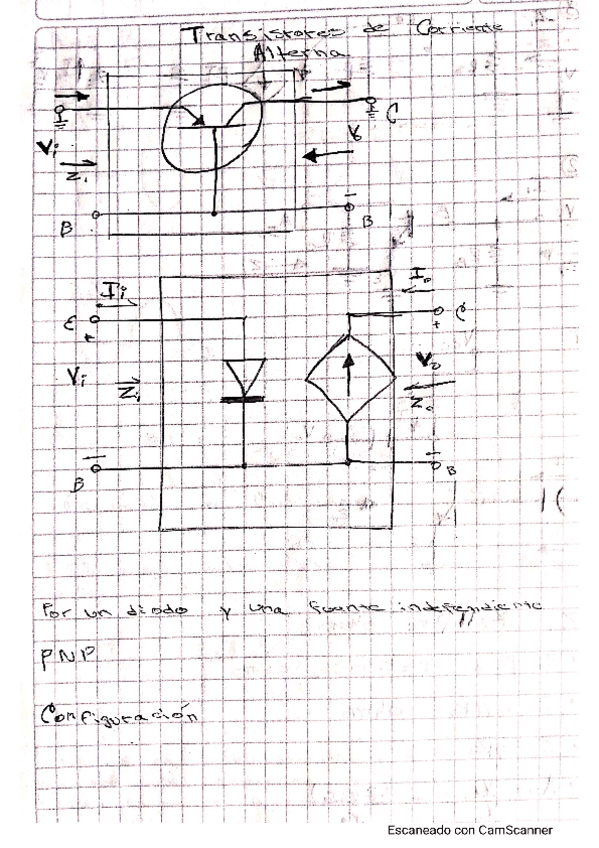 Transistores de Corriente
Alterna
C
Vi
Zi
B
B
Ii
Io
E
C
+
+
Vi
Zi
Vo
Zo
B
B
Por un diodo y una fuente independiente
PNP
Configuración
Escaneado con CamScanner